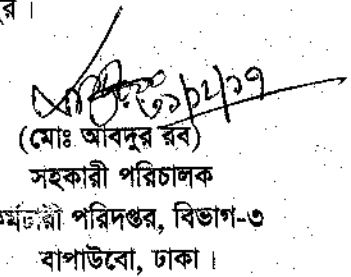 র।
৩১/১২/১৭
(মোঃ আবদুর রব)
সহকারী পরিচালক
কর্মচারী পরিদপ্তর, বিভাগ-৩
বাপাউবো, ঢাকা।